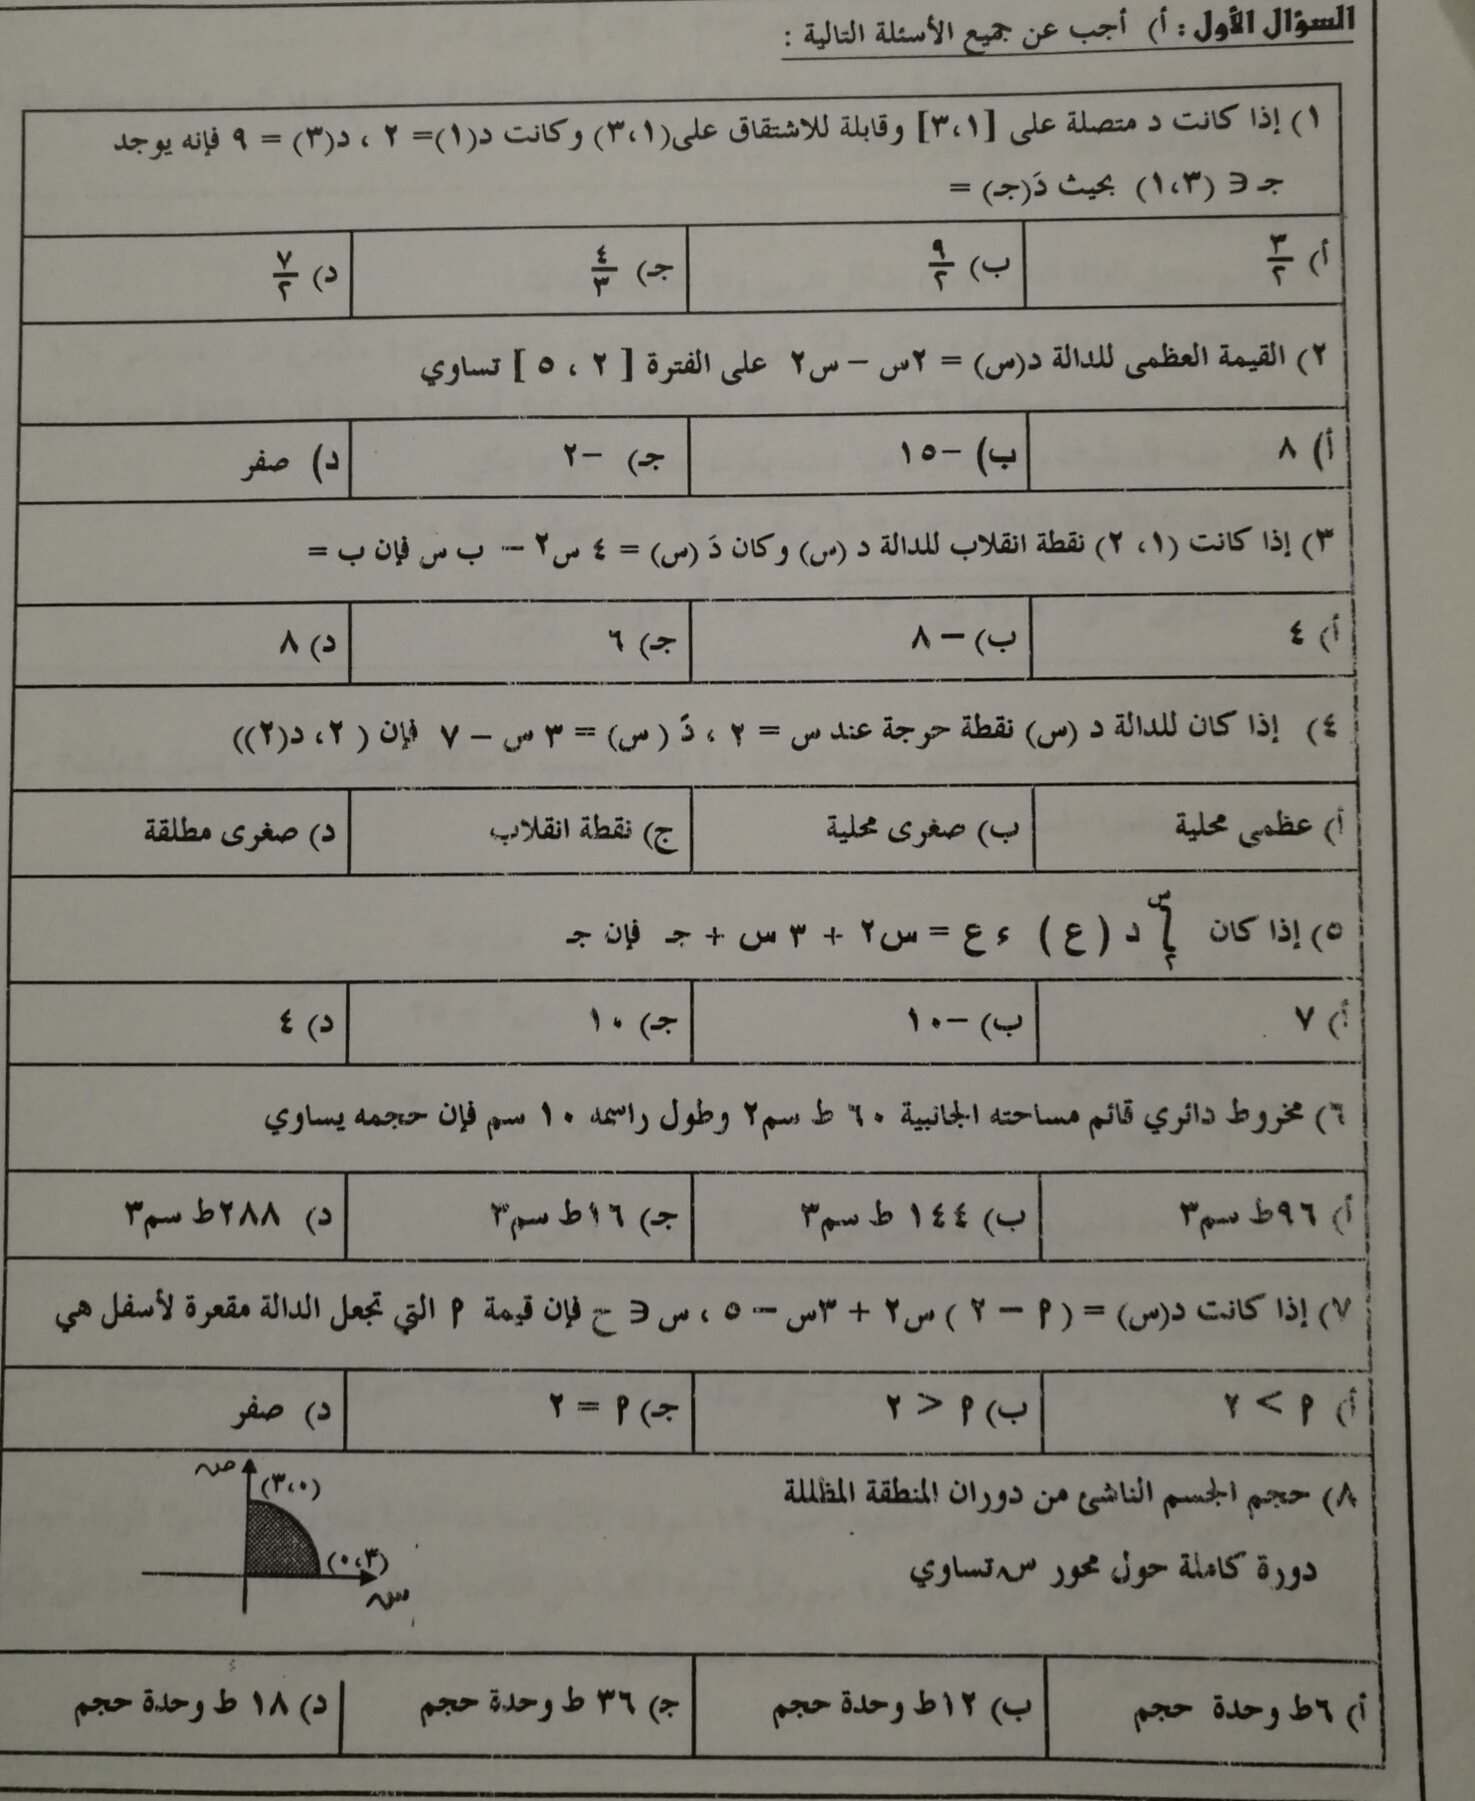 السؤال الأول : أ) أجب عن جميع الأسئلة التالية :
١) إذا كانت د متصلة على [٣،١] وقابلة للاشتقاق على(٣،١) وكانت د(١)= ٢ ، د(٣) = ٩ فإنه يوجد
جـ ∋ (١،٣) بحيث دَ(جـ) =
أ) ٣/٢ ب) ٩/٢ جـ) ٤/٣ د) ٧/٢
٢) القيمة العظمى للدالة د(س) = ٢س – س٢ على الفترة [ ٢ ، ٥ ] تساوي
أ) ٨ ب) –١٥ جـ) –٢ د) صفر
٣) إذا كانت (١، ٢) نقطة انقلاب للدالة د (س) وكان دَ (س) = ٤ س٢ – ب س فإن ب =
أ) ٤ ب) – ٨ جـ) ٦ د) ٨
٤) إذا كان للدالة د (س) نقطة حرجة عند س = ٢ ، دً (س) = ٣ س – ٧ فإن ( ٢، د(٢))
أ) عظمى محلية ب) صغرى محلية ج) نقطة انقلاب د) صغرى مطلقة
٥) إذا كان ∫٢س د ( ع ) ء ع = س٢ + ٣ س + جـ فإن جـ
أ) ٧ ب) –١٠ جـ) ١٠ د) ٤
٦) مخروط دائري قائم مساحته الجانبية ٦٠ ط سم٢ وطول راسمه ١٠ سم فإن حجمه يساوي
أ) ٩٦ط سم٣ ب) ١٤٤ ط سم٣ جـ) ١٦ط سم٣ د) ٢٨٨ط سم٣
٧) إذا كانت د(س) = ( ٩ – ٢ ) س٢ + ٣س – ٥ ، س ∋ ح فإن قيمة ٩ التي تجعل الدالة مقعرة لأسفل هي
أ) ٩ > ٢ ب) ٩ < ٢ جـ) ٩ = ٢ د) صفر
٨) حجم الجسم الناشئ من دوران المنطقة المظللة
دورة كاملة حول محور س تساوي
ص
(٣،٠)
(٠،٣)
س
أ) ٦ط وحدة حجم ب) ١٢ط وحدة حجم جـ) ٣٦ ط وحدة حجم د) ١٨ ط وحدة حجم